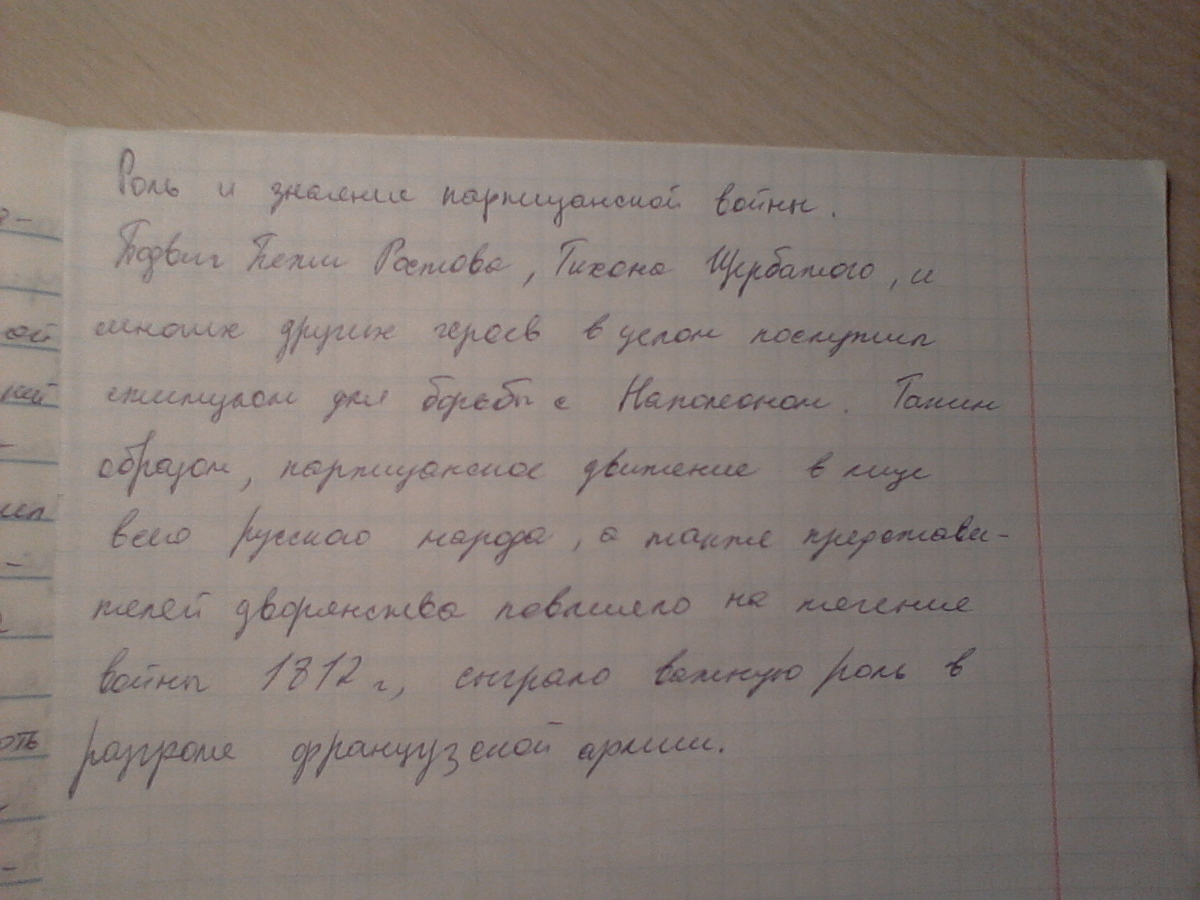 Роль и значение партизанской войны.
Подвиг Пети Ростова, Тихона Щербатого, и
многих других героев в целом послужил
стимулом для борьбы с Наполеоном. Таким
образом, партизанское движение в лице
всего русского народа, а также представи-
телей дворянства повлияло на течение
войны 1812 г, сыграло важную роль в
разгроме французской армии.
ой
ний
оть